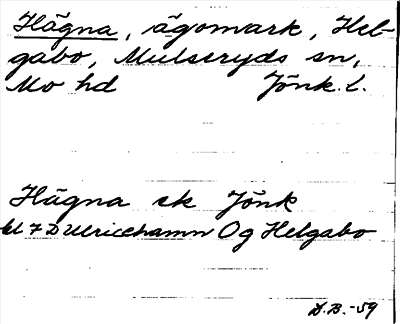 Hägna, ägomark, Hel-
gabo, Mulseryds sn,
Mo hd Jönk. l.
Hägna ek Jönk
bl 7 D Ulricehamn Og Helgabo
D.B.-59